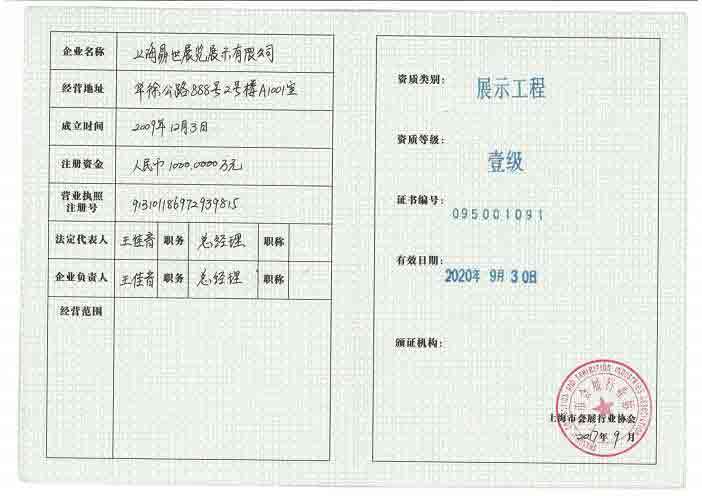 企业名称 上海勗世展览展示有限公司
经营地址 华徐公路888号2号楼A1001室
成立时间 2009年12月3日
注册资金 人民币1000.0000万元
营业执照
注册号 913101186972939815
法定代表人 王佳音 职务 总经理 职称
企业负责人 王佳音 职务 总经理 职称
经营范围
资质类别: 展示工程
资质等级: 壹级
证书编号: 095001091
有效日期: 2020年 9月 30日
颁证机构:
上海市会展行业协会
2017年9月